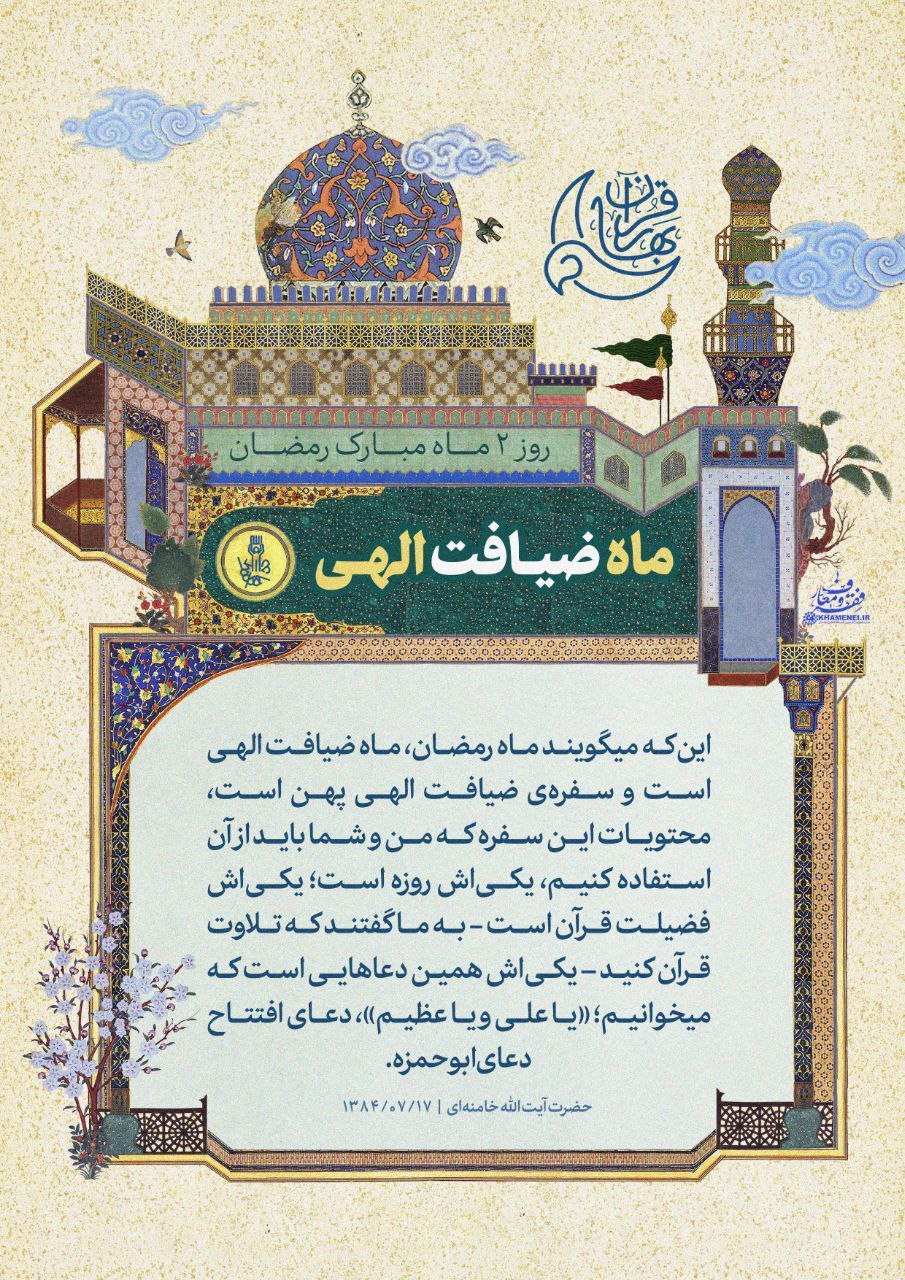 بهار قرآن
روز ۲ ماه مبارک رمضان
ماه ضیافت الهی
فقه و معارف
KHAMENEI.IR
این که میگویند ماه رمضان، ماه ضیافت الهی
است و سفره‌ی ضیافت الهی پهن است،
محتویات این سفره که من و شما باید از آن
استفاده کنیم، یکی‌اش روزه است؛ یکی‌اش
فضیلت قرآن است - به ما گفتند که تلاوت
قرآن کنید - یکی‌اش همین دعاهایی است که
میخوانیم؛ «یا علی و یا عظیم»، دعای افتتاح
دعای ابوحمزه.
حضرت آیت الله خامنه‌ای | ۱۳۸۴/۰۷/۱۷